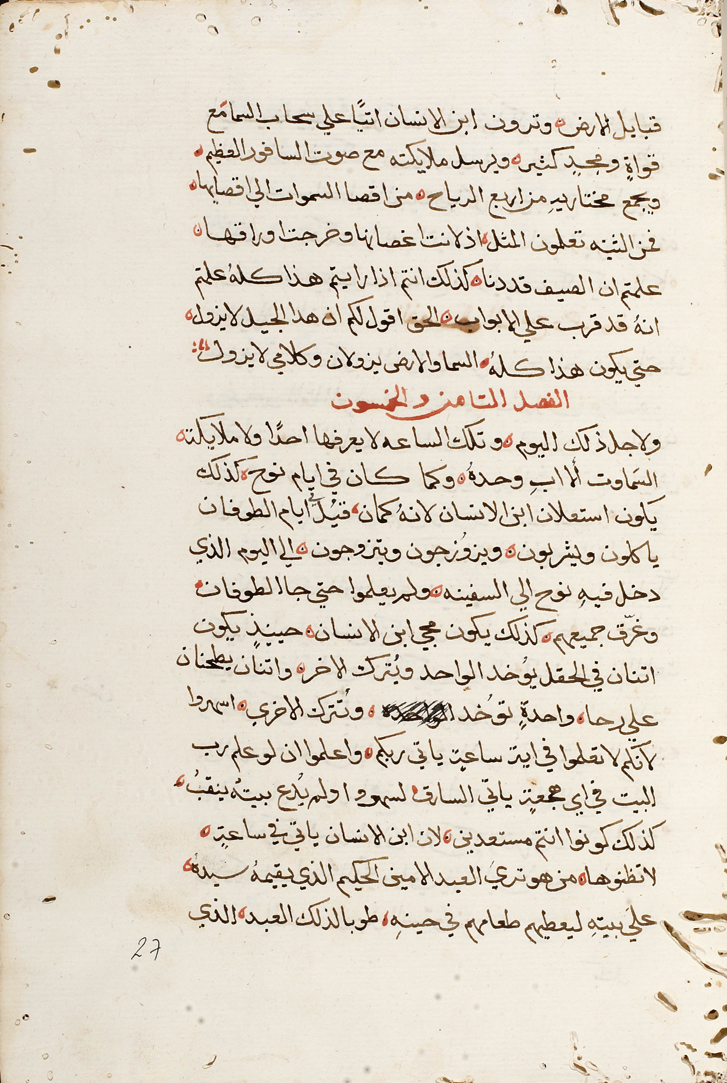 قبايل الارض ه وترون ابن الانسان اتيًا علي سحاب السما مَع
قواةٍ ومجدٍ كثير ه ويرسل ملايكته مع صوت السافور العظيم ه
ويجمع مختاريهِ من اربع الرياح ه من اقصا السموات الي اقصايها ه
فمن التينه تعلمون المثل ه اذ لانت اغصانها وخرجت اوراقها ه
علمتم ان الصيف قد دنا ه كذلك انتم اذا رايتم هذا كلهُ علمتم
انهُ قد قرب علي الابواب ه الحق اقول لكم ان هدا الجيل لايزول ه
حتي يكون هذا كلهُ ه السما والارض يزولان وكلامي لايزول
الفصل التامن والخمسون
ولاجل ذلك اليوم ه وتلك الساعه لايعرفها احدًا ولا ملايكتة ه
السَماوت ألا اب وحدهُ ه وكما كان في ايام نوح ه كذلك
يكون استعلان ابن الانسان لانهُ كمان ه قيْل في ايام الطوفان
ياكلون ويشربون ه ويزوزجون ويتزوجون ه الي اليوم الذي
دخل فيهِ نوح الي السفينه ه ولم يعلموا حتي جا الطوفان ه
وغرّف جميعهم ه كذلك يكون مجي ابن الانسان ه حينيذٍ يكون
اتنان في الحقل يوُخد الواحد ويُترك الاخر ه واتنان يطحنان
علي رحا ه واحدةٍ توُخد ه وتُترك الاخري ه اسهروا
لانكم لاتعلموا في اية ساعةٍ ياتي ربكم ه واعلموا ان لو علم رب
البت في اي هجعةٍ ياتي السارق ه لسهر و اولم يُدع بيتهُ ينقبُ ه
كذلك كونوا انتم مستعدين ه لان ابن الانسان ياتي في ساعةٍ ه
لاتظنوها ه من هو تريَ العبد الامين الحكيم الذي يقيمهُ سيدهُ ه
عليَ بيتهِ ليعطيهم طعامهم في حينهِ ه طوبا لذلك العبد ه الذي
27